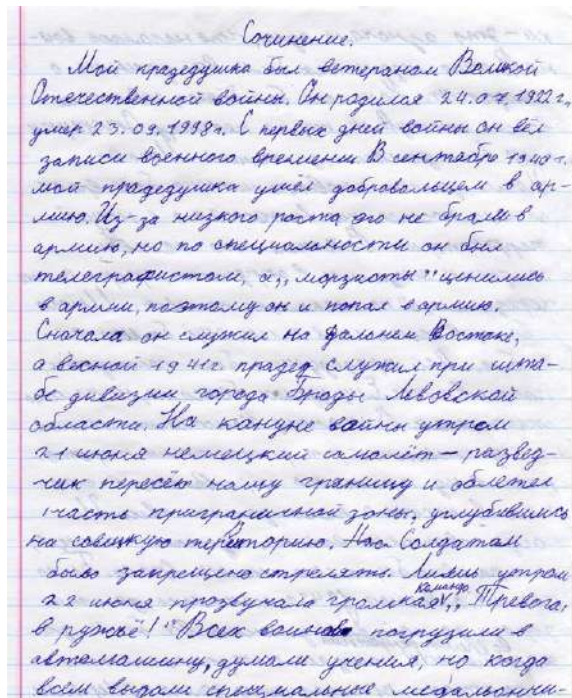 Сочинение.
Мой прадедушка был ветераном Великой
Отечественной войны. Он родился 24.07.1922г.,
умер 23.09.1998г. С первых дней войны он вёл
записи военного времени В сентябре 1940г.
мой прадедушка ушёл добровольцем в ар-
мию. Из-за низкого роста его не брали в
армию, но по специальности он был
телеграфистом, а „морзисты" ценились
в армии, поэтому он и попал в армию.
Сначала он служил на Далонем Востоке,
а весной 1941г прадед служил при шта-
бе дивизии города Броды Львовской
области. На кануне войны утром
21 июня немецкий самолёт – развед-
чик пересёк нашу границу и облетел
часть приграничной зоны, углубившись
на совецкую територию. Но Солдатам
было запрещено стрелять. Лишь утром
22 июня прозвучала громкая команда „Тревога,
в ружьё!" Всех воинов погрузили в
автомашину, думали учения, но когда
всем выдали специальные медальончи-